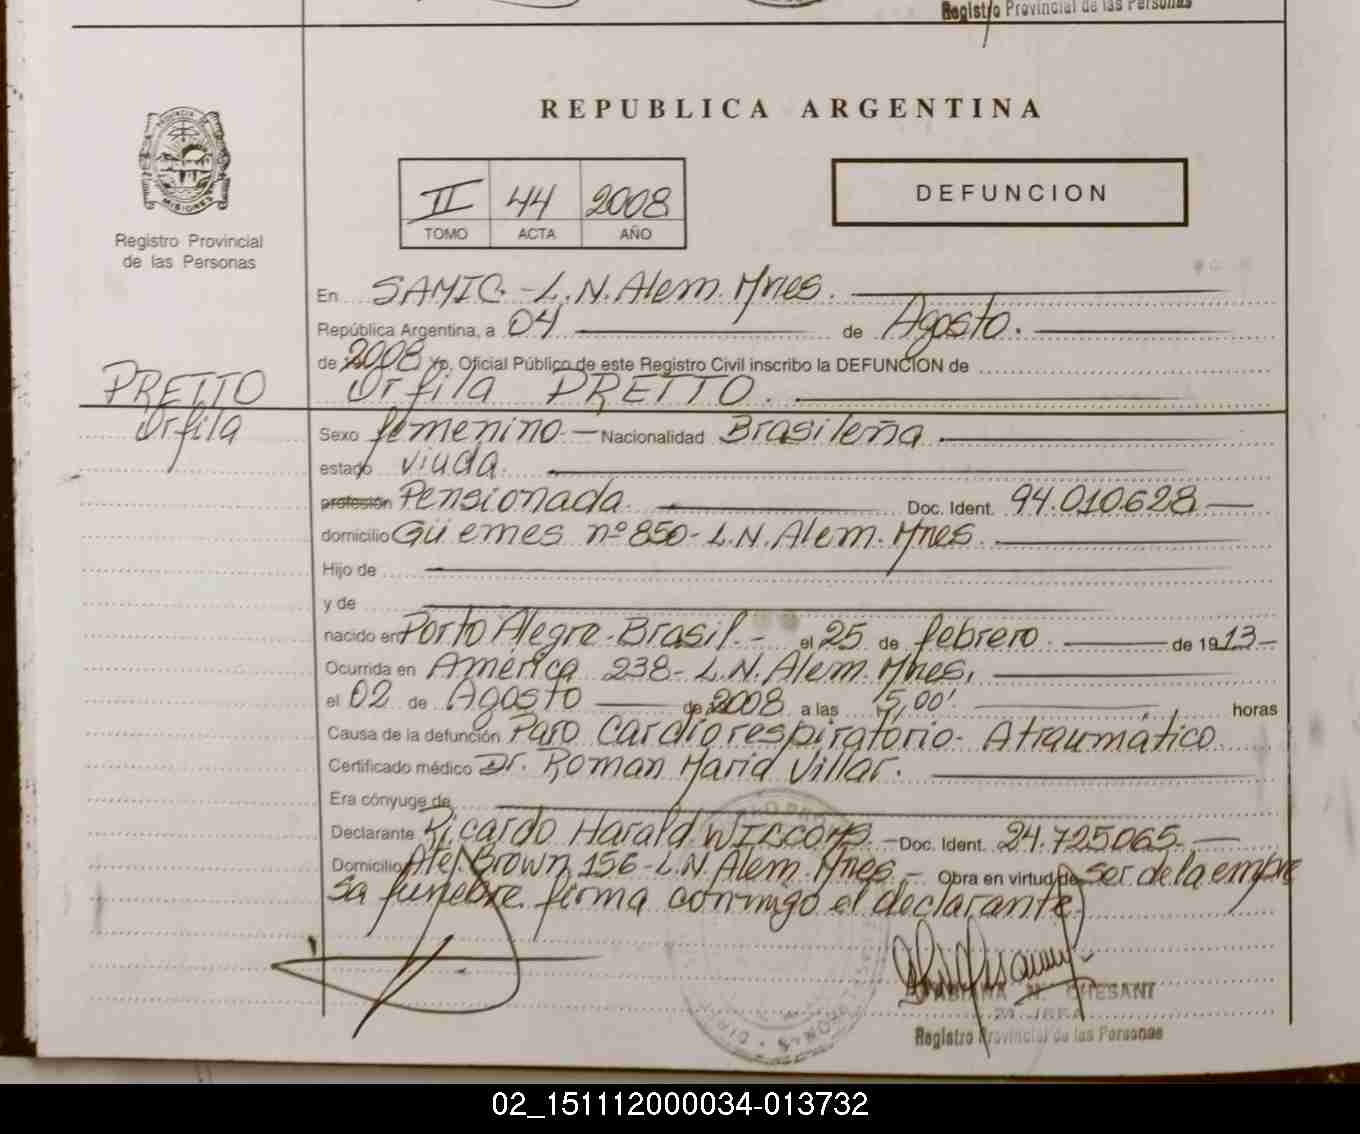 Registro Provincial de las Personas
REPUBLICA ARGENTINA
PROVINCIA DE
MISIONES
Registro Provincial
de las Personas
II 44 2008
TOMO ACTA AÑO
DEFUNCION
En SAMIC.-L.N.Alem.Mnes.
República Argentina, a 04 de Agosto.
de 2008 Yo, Oficial Público de este Registro Civil inscribo la DEFUNCION de
PRETTO
Orfila PRETTO.
Orfila
Sexo femenino.- Nacionalidad Brasileña
estado viuda.
profesión Pensionada Doc. Ident. 94.010.628
domicilio Güemes nº 850-L.N.Alem.Mnes.
Hijo de
y de
nacido en Porto Alegre-Brasil.- el 25 de febrero de 1913-
Ocurrida en América 238-L.N.Alem.Mnes.
el 02 de Agosto de 2008 a las 15,00' horas
Causa de la defunción Paro Cardiorespiratorio-Atraumático
Certificado médico Dr. Roman Maria Villar.
Era cónyuge de
Declarante Ricardo Harald Doc. Ident. 24.725065.-
Domicilio Alte. Brown 156-L.N.Alem.Mnes.- Obra en virtud de ser de la empre
sa funebre. firma conmigo el declarante.
FABIANA N. CHESANI
Registro Provincial de las Personas
02_151112000034-013732